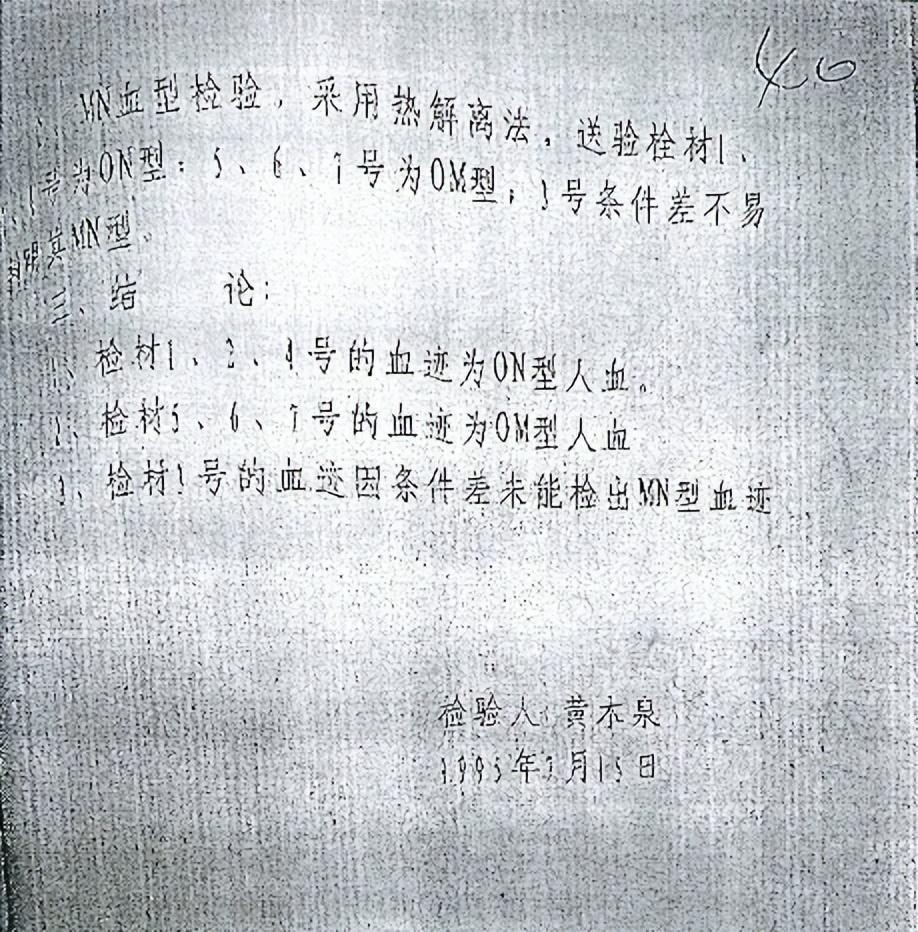 40
MN血型检验，采用热解离法，送验检材1、
号为ON型；5、6、7号为OM型；3号条件差不易
其MN型。
三、结 论：
1、检材1、2、4号的血迹为ON型人血。
2、检材5、6、7号的血迹为OM型人血
3、检材3号的血迹因条件差未能检出MN型血迹
检验人：黄木泉
1995年7月15日